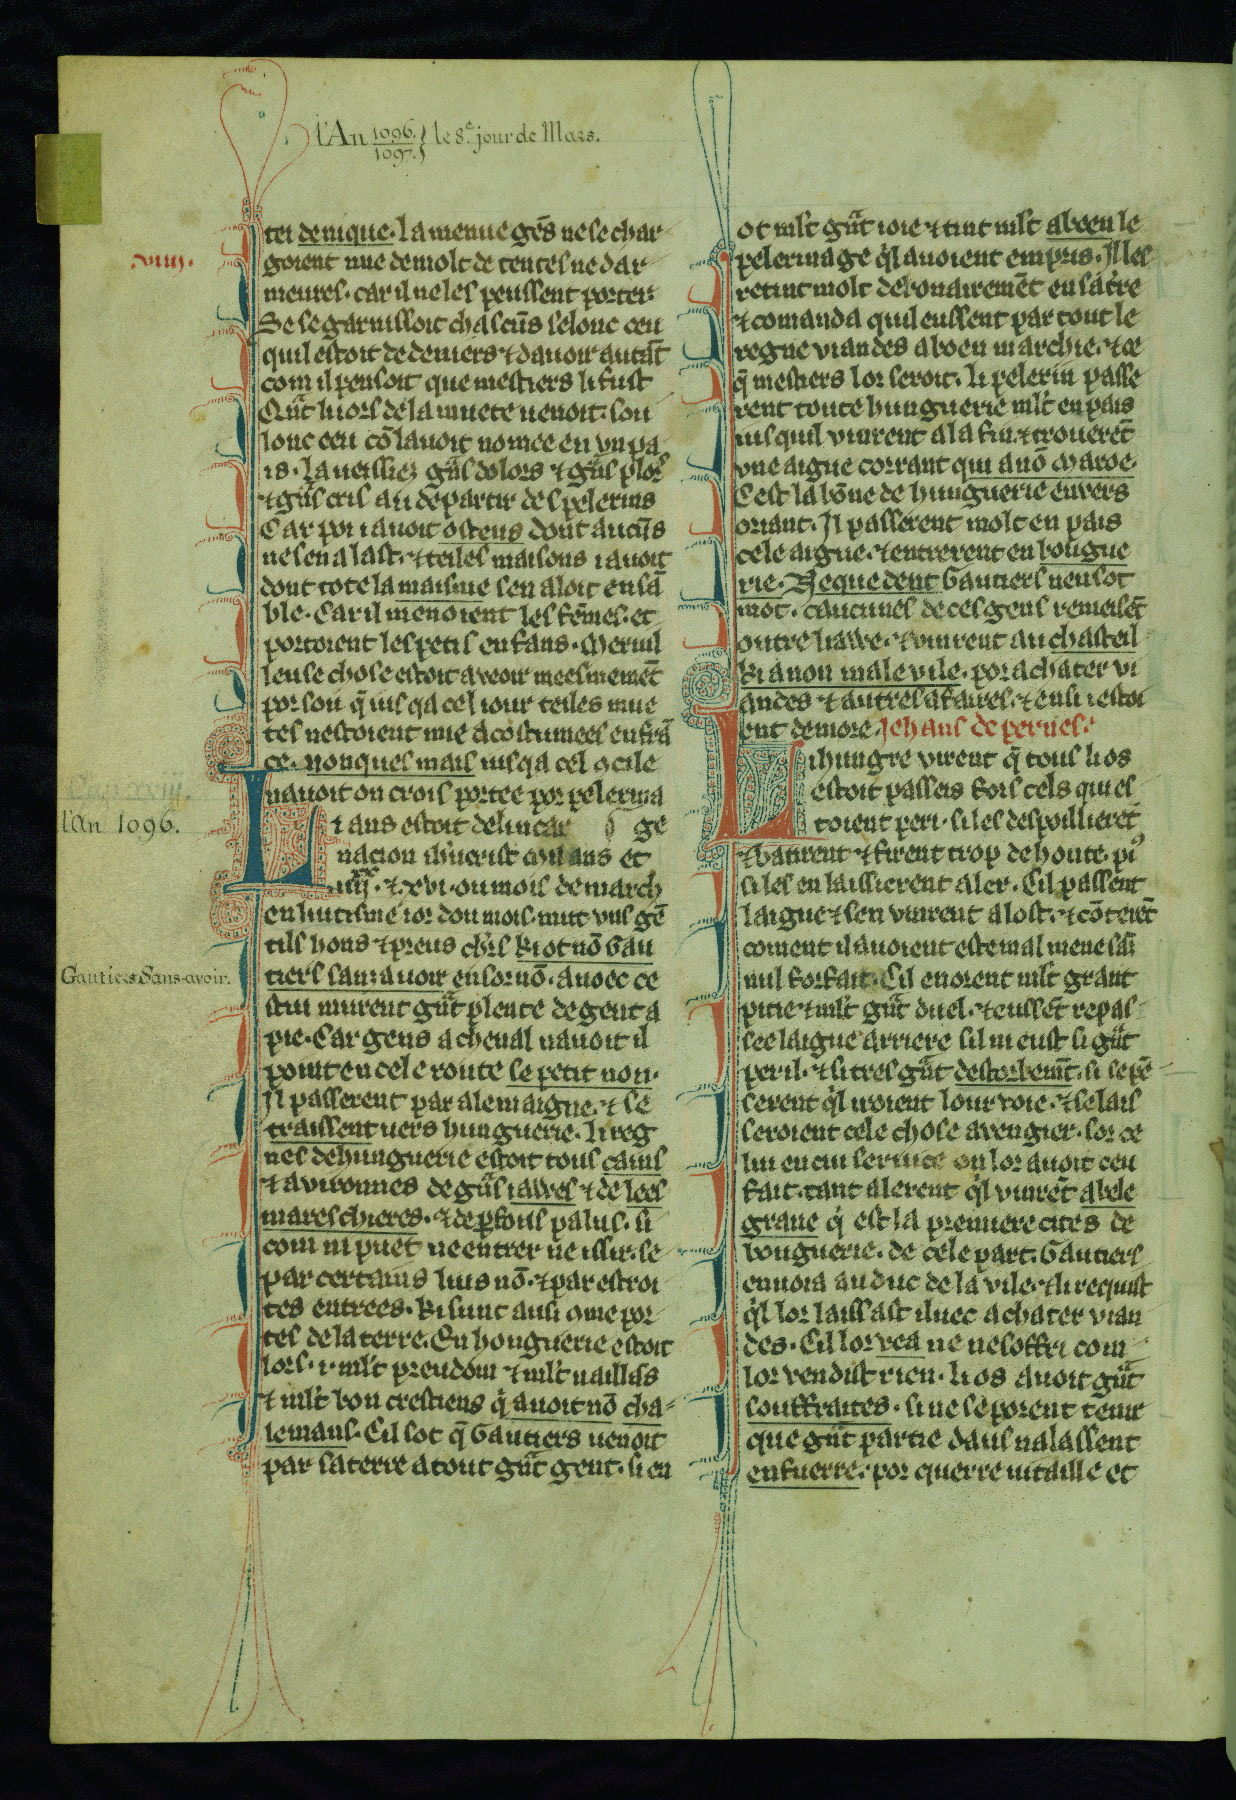 l'An 1096./1097.} le 8.e jour de Mars.
tei denique. la menue gēs ne se char
.viiij.
goient mie de molt de tentes ne dar
meures. car il ne les peussent porter.
Se se garnissoit chascūs selonc ceu
quil estoit de deniers ⁊ dauoir autāt
com il pensoit que mestiers li fust
Qᷓt li iors de la muete uenoit. son
lonc ceu cō lauoit nomee en vn pa
is. La ueissiez gᷓs dolors ⁊ gᷓs plorꝰ
⁊ gᷓs cris au departir des pelerins
Car poi i auoit ostens dont aucūs
ne sen alast. ⁊ teiles maisons i auoit
dont tote la maisnie sen aloit ensā
ble. Car il menoient les fēmes. et
portoient les petis enfans. Meruil
leuse chose estoit a veoir meesmemēt
por sou q̄ iusqa cel iour teiles mue
tes nestoient mie acostumees en frā
ce. nonques mais iusqa cel ꝯcile
nauoit on crois portee por pelerina
ge
Li ans estoit de lincar
nacion ihūcrist M. ans et
.iiijˣˣ. ⁊ xvi. ou mois de march
l'An 1096.
en huitisme ior dou mois. mut vns gē
tils hons ⁊ preus chr̄s ki ot nō Gau
tiers sanz auoir en sornō. auoec ce
Gautiers Sans-avoir.
stui murent gᷓt plente de gent a
pie. Car gens a cheual nauoit il
point en cele route se petit non.
Il passerent par alemaigne. ⁊ se
traissent uers hunguerie. li reg
nes de hunguerie estoit tous cains
⁊ avironnes de gᷓs iawes ⁊ de lees
mareschieres. ⁊ de ꝑfons palus. si
com ni puet ne entrer ne issir. se
par certains lius nō. ⁊ par estroi
tes entrees. ki sunt ausi ꝯme por
tes de la terre. En honguerie estoit
lors .i. ml't preudom ⁊ ml't uaillās
⁊ ml't bon crestiens q̇ auoit nō cha-
lemans. Cil sot q̄ Gautiers uenoit
par sa terre a tout gᷓt gent. si en
ot ml't gᷓt ioie ⁊ tint ml't a boen le
pelerinage q̇l auoient empris. Il les
retint molt debonairemēt en sa t̄re
⁊ comanda quil eussent par tout le
regne viandes a boen marchie. ⁊ ce
q̄ mestiers lor seroit. li pelerin passe
rent toute hunguerie ml't en pais
iusquil vinrent a la fin. ⁊ trouerēt
vne aigue corrant qui a nō Maroe.
Cest la bōne de hunguerie envers
oriant. Il passerent molt en pais
cele aigue. ⁊ entrerent en bougue
rie. Neque dent Gautiers nen sot
mot. caucunes de ces gens remeisēt
outre liawe. ⁊ vinrent au chasteil
ki a non male vile. por achater vi
andes ⁊ autres afaires. ⁊ ensi i estoi
ent demore. Jehans de peruels.
Li hungre virent q̄ tous li os
estoit passeis fors cels qui es
toient peri. si les despoillierēt
⁊ batirent ⁊ firent trop de honte. pꝰ
si les en laissierent aler. Cil passent
laigue ⁊ sen vinrent a lost. ⁊ cōterēt
coment il auoient este mal mene sās
nul forfait. Cil en orent ml't grant
pitie ⁊ ml't gᷓt duel. ⁊ eussēt repas-
see laigue arriere sil ni eust si gᷓt
peril. ⁊ si tres gᷓt destorbemt̄. si se pē
serent q̇l iroient lour voie. ⁊ se lais
seroient cele chose a vengier. sor ce
lui en cui seruice on lor auoit ceu
fait. tant alerent q̇l vinrēt a bele
graue q̇ est la premiere cites de
bouguerie. de cele part. Gautiers
enuoia au duc de la vile. ⁊ li requist
q̇l lor laissast iluec achater vian
des. Cil lor vea ne ne soffri com
lor vendist rien. li os auoit gᷓt
souffraites. si ne se porent tenir
que gᷓt partie daus nalassent
en fuerre. por querre uitaille et